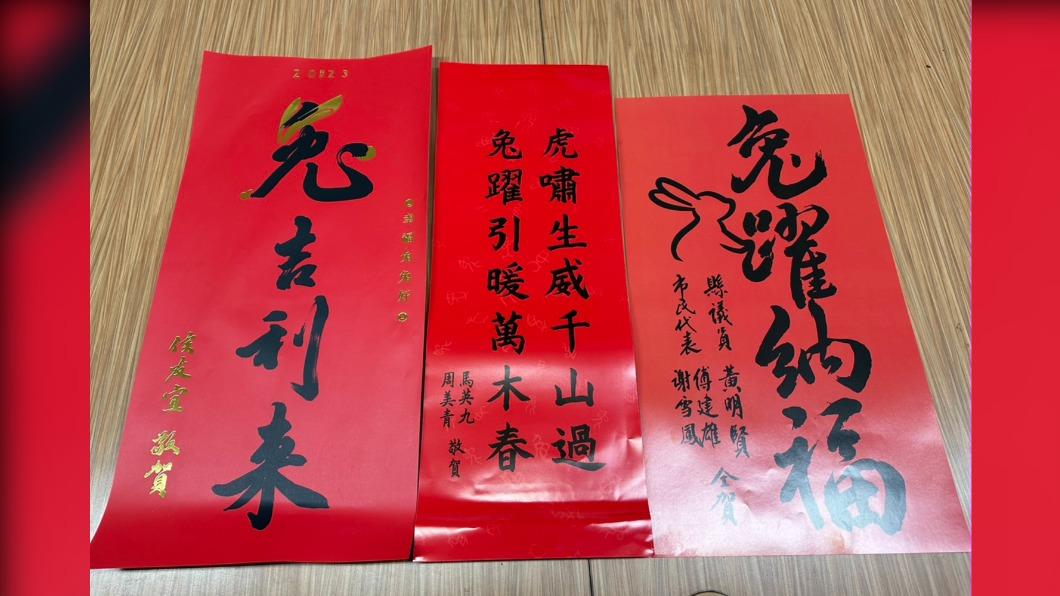 2023
兔
吉
利
来
侯友宜 敬賀
虎嘯生威千山過
兔躍引暖萬木春
馬英九
周美青
敬賀
兔躍納福
縣議員 黃明賢
市民代表 傅建雄
謝雪鳳
仝賀